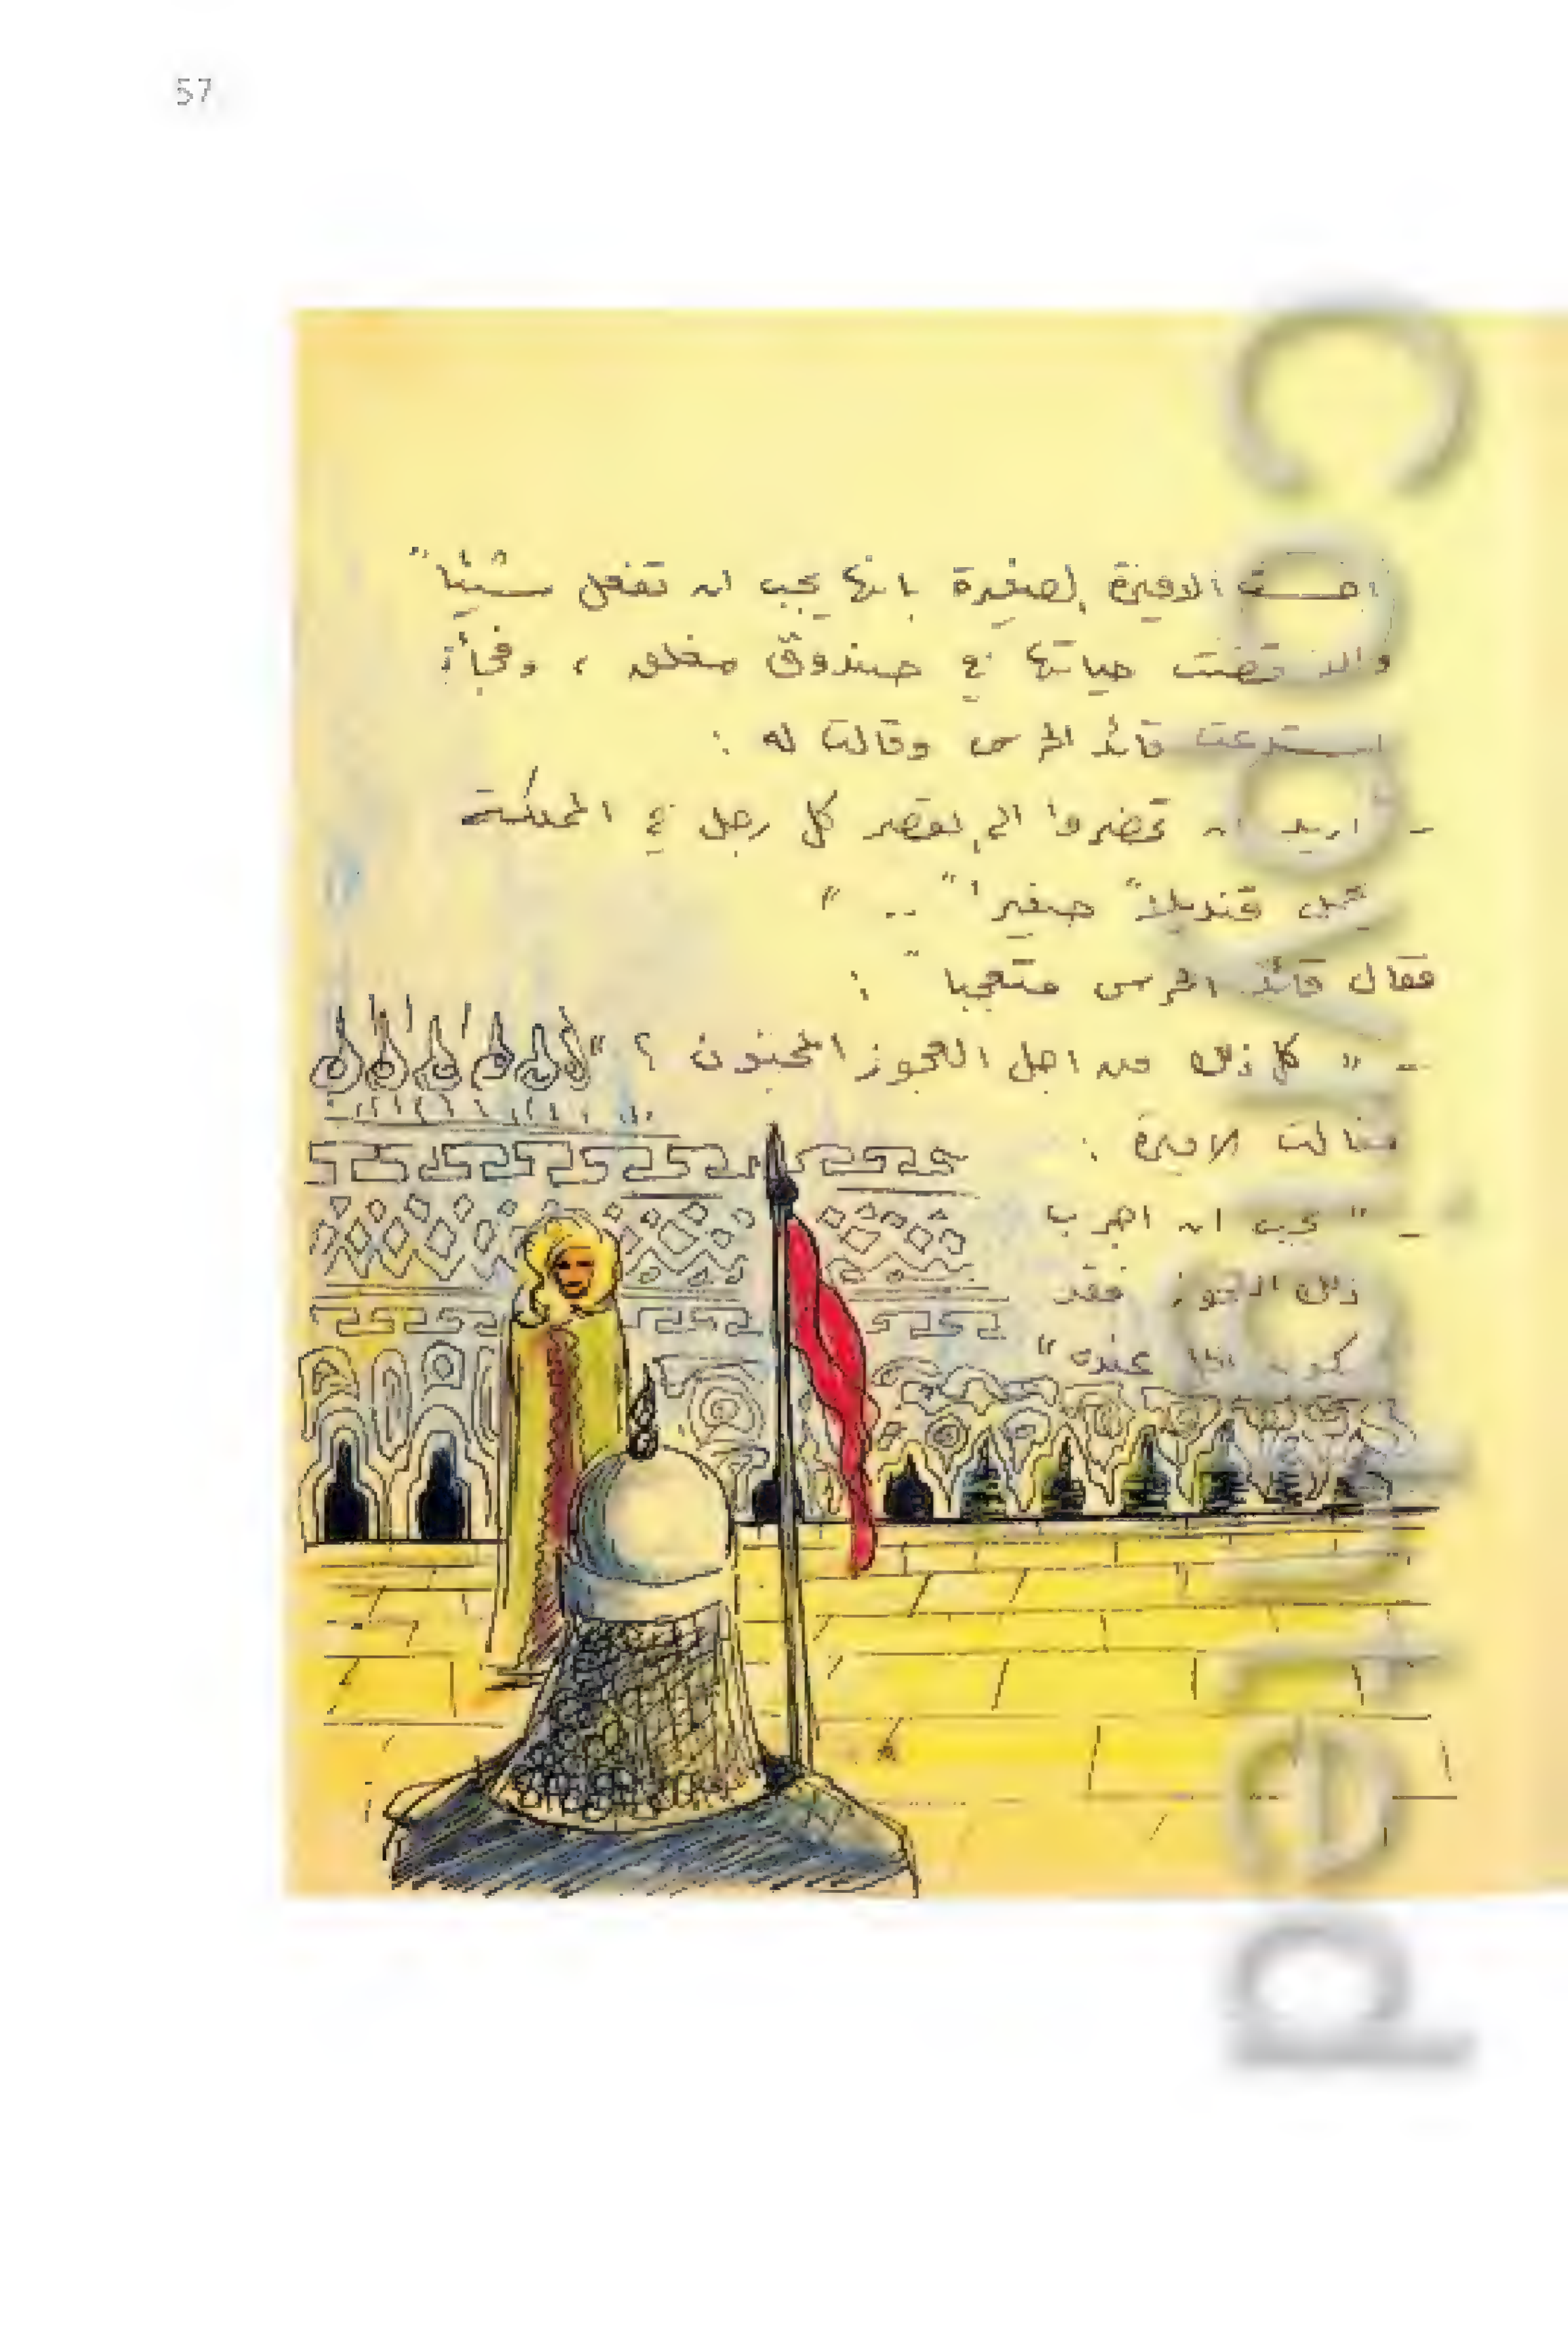 57
احست الاميرة الصغيرة بانها يجب ان تفعل شيئاً
والا قضت حياتها في صندوق مغلق ، وفجأة
استدعت قائد الحرس وقالت له :
- اريد ان تحضروا الى القصر كل رجل في المملكة
يحمل قنديلاً صغيراً .. "
فقال قائد الحرس متعجباً :
- " كل ذلك من اجل العجوز المجنون ؟ "
فقالت الاميرة :
- " يجب ان اجرب
ذلك العجوز فقد
يكون عنده "
Copyrighted